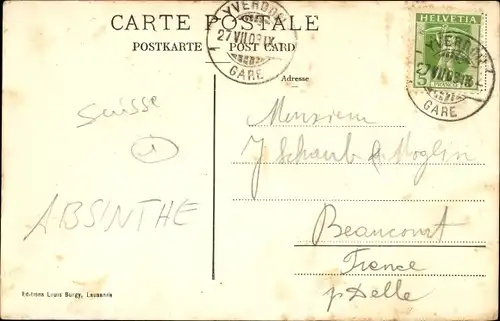 CARTE POSTALE
POSTKARTE POST CARD
YVERDON
27 VII 09 IX
GARE
HELVETIA
5
FRANCO
YVERDON
27 VII 09 IX
GARE
Adresse
Suisse
ABSINTHE
Monsieur
J Schaub & Moglin
Beaucourt
France
p Delle
Editions Louis Burgy, Lausanne